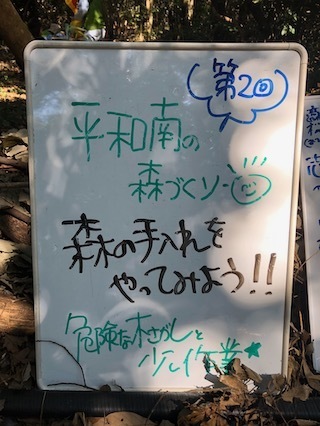 第2回
平和南の
森づくり
森の手入れを
やってみよう!!
危険な木さがしと
少し作業